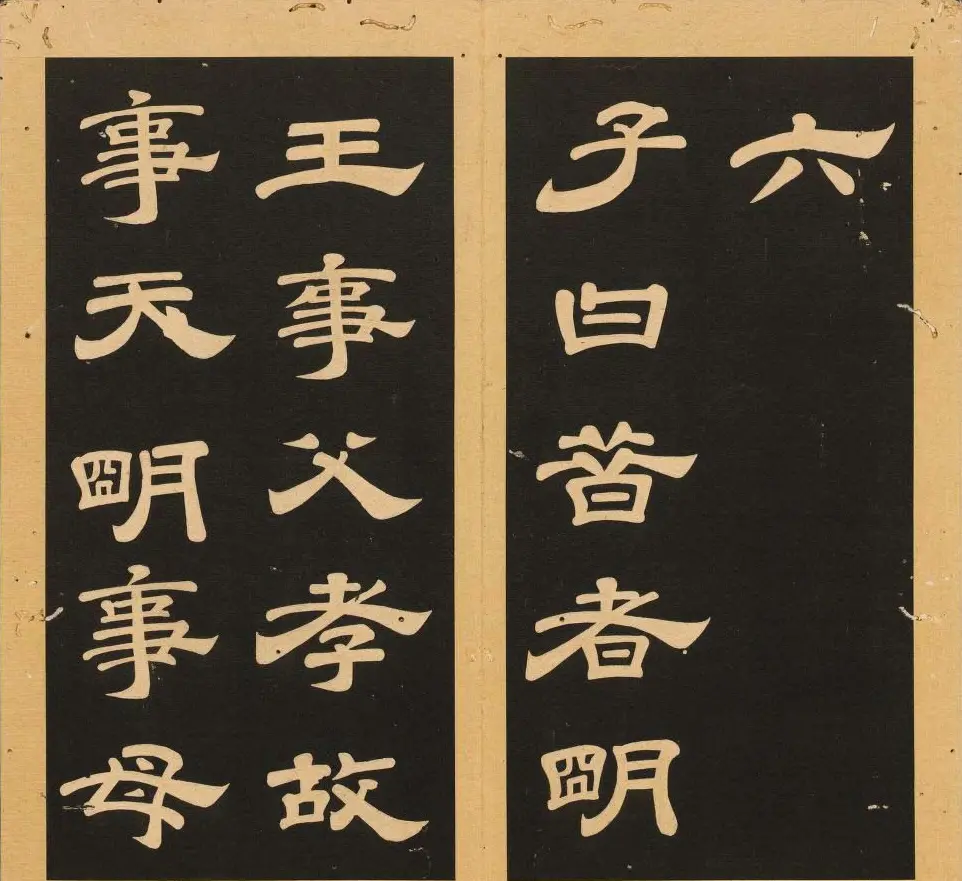 六
子曰昔者明
王事父孝故
事天明事母